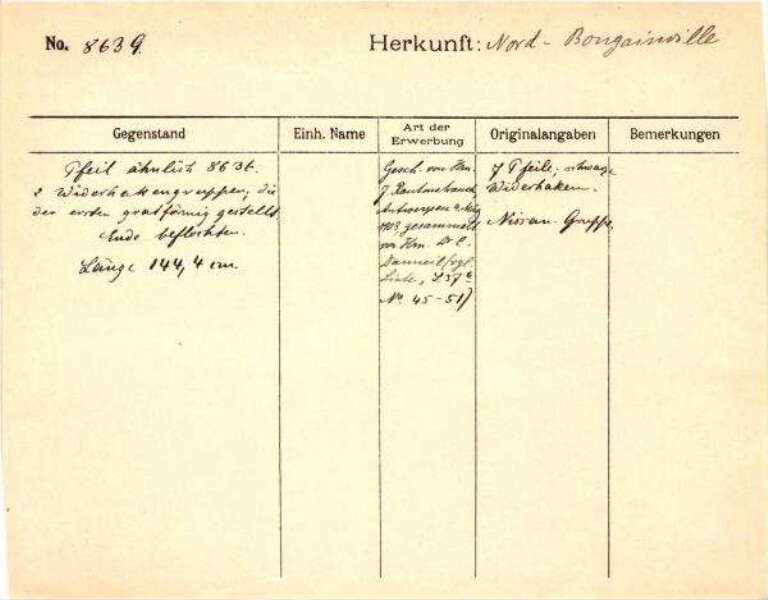 No. 8639
Herkunft: Nord-Bougainville
Gegenstand
Einh. Name
Art der Erwerbung
Originalangaben
Bemerkungen
Pfeil ähnlich 8636.
2 Widerhakengruppen; die
der ersten gratförmig gestellt.
Ende beflochten.
Länge 144,4 cm.
Gesch. von Hrn.
J. Rautenstrauch
Antwerpen
gesammelt
von Hrn. Dr C.
Danneil (vgl.
Liste, S. 37
No. 45-51)
7 Pfeile; schwarze
Widerhaken.
Nissan-Gruppe.